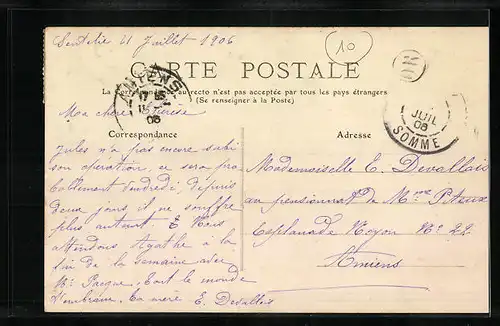 11 Juillet 1906
10
CARTE POSTALE
La Correspondance au recto n'est pas acceptée par tous les pays étrangers
(Se renseigner à la Poste)
AMIENS
JUIL
06
SOMME
Ma chère
Correspondance
Adresse
Jules n'a pas encore subi
son opération, ce sera pro
bablement vendredi, depuis
deux jours il ne souffre
plus autant
attendons Agathe à la
fin de la semaine avec
tout le monde
t'embrasse, ta mère E. Devallois
Mademoiselle E. Devallois
au pensionnat de Mme
Esplanade Noyon No 22
Amiens